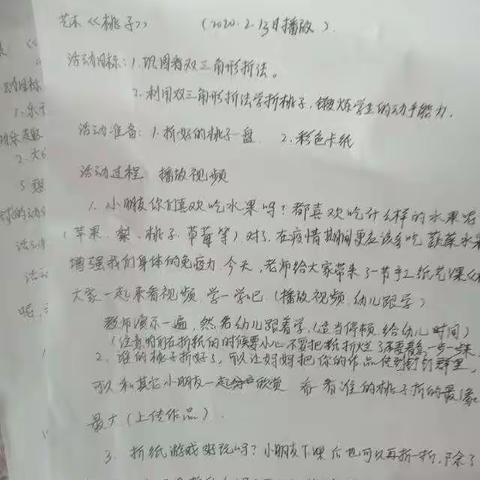 艺术《桃子》 (2020.2.13日播放)
活动目标:1.巩固看双三角形折法。
2.利用双三角形折法学折桃子,锻炼学生的动手能力.
活动准备:1.折好的桃子一盘 2.彩色卡纸
活动过程 播放视频
1.小朋友你们喜欢吃水果吗?都喜欢吃什么样的水果呢
(苹果.梨.桃子.草莓等)对了.在疫情期间更应该多吃蔬菜水果
增强我们身体的免疫力.今天,老师给大家带来了一节手工纸艺课《桃
大家一起来看视频 学一学吧(播放视频.幼儿跟学)
教师演示一遍,然看幼儿跟着学(适当停顿 给幼儿时间)
(注意的在折纸的时候要小心不要把纸折烂 一步一步来
2.谁的桃子折好了,可以让妈妈把你的作品传到钉钉群里,
可以和其它小朋友一起 欣赏 看看谁的桃子折的最像
最大(上传作品).
3.折纸游戏好玩吗?小朋友下课后也可以再折一折,除了